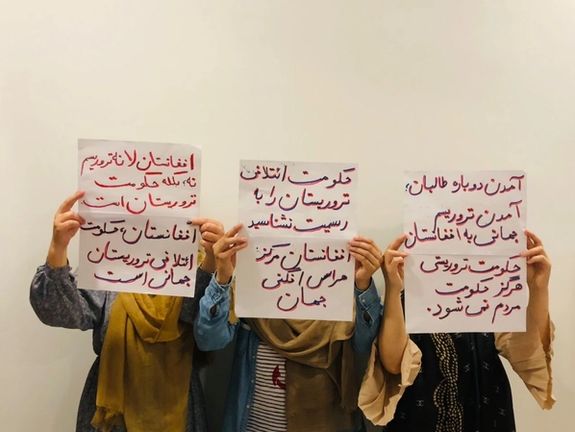 آمدن دوباره طالبان،
آمدن تروریسم
جهانی به افغانستان
حکومت تروریستی
هرگز حکومت
مردم نمی شود.
حکومت ائتلافی
تروریستان را به
رسمیت نشناسید
افغانستان مرکز
هراس افگنی
جهان
افغانستان لانه تروریسم
نه، بلکه حکومت
تروریستان است
افغانستان، حکومت
ائتلافی تروریستان
جهانی است